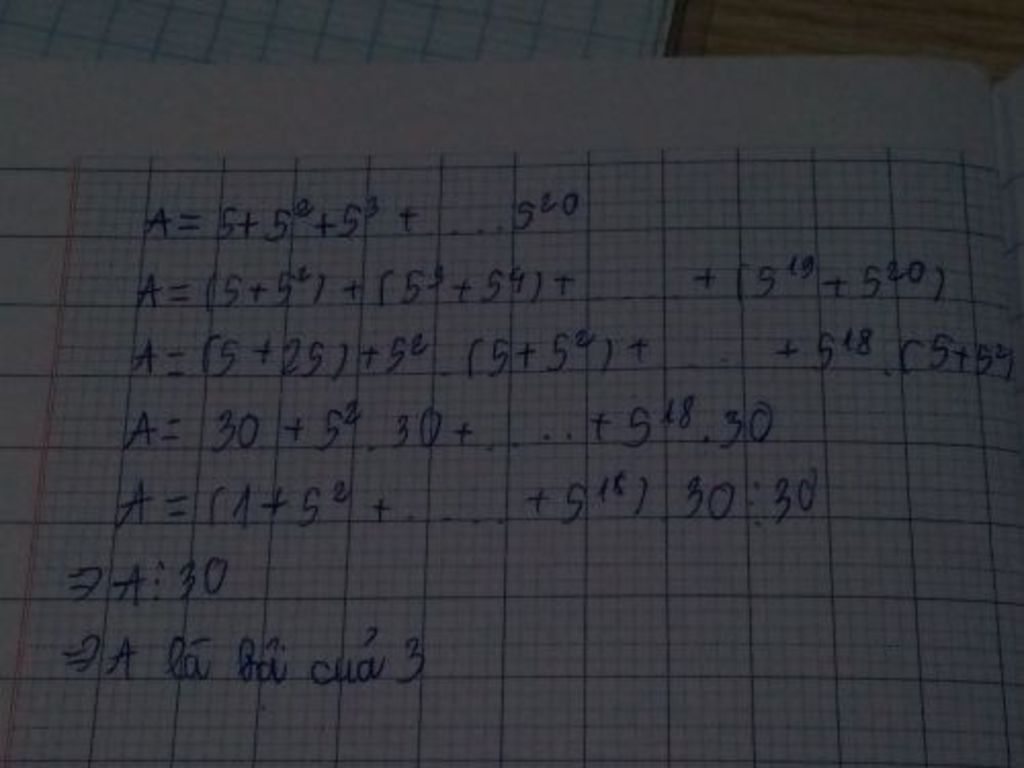 A = 5 + 5² + 5³ + ..... 5²⁰
A = (5 + 5²) + (5³ + 5⁴) + ..... + (5¹⁹ + 5²⁰)
A = (5 + 25) + 5² . (5 + 5²) + ..... + 5¹⁸ . (5 + 5²)
A = 30 + 5² . 30 + ..... + 5¹⁸ . 30
A = (1 + 5² + ..... + 5¹⁸) 30 ⋮ 30
⇒ A ⋮ 30
⇒ A là bội của 3